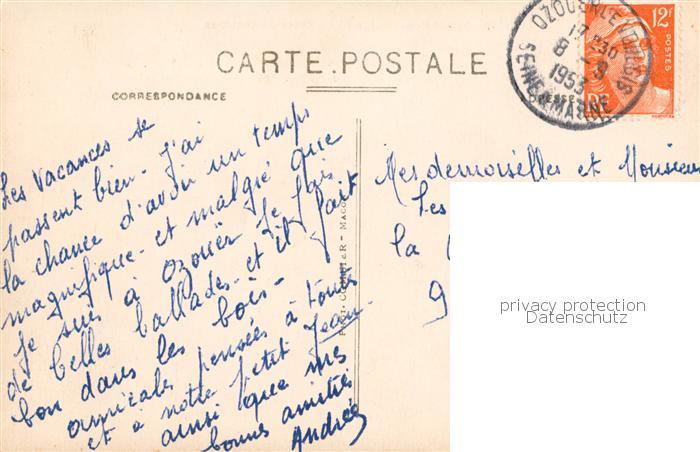 CARTE POSTALE
CORRESPONDANCE
OZOUER-LE
17-30
8
1953
SEINE MARNE
12F
POSTES
RF
Les vacances se
passent bien - j'ai
la chance d'avoir un temps
magnifique - et malgré que
je suis à Ozouër je fais
de belles ballades - et il fait
bon dans les bois -
amicales pensées à toutes
et à notre petit Jean -
ainsi que mes
bonnes amitiés
Andrée
Mesdemoiselles et Monsieur
Les
la
9
privacy protection
Datenschutz